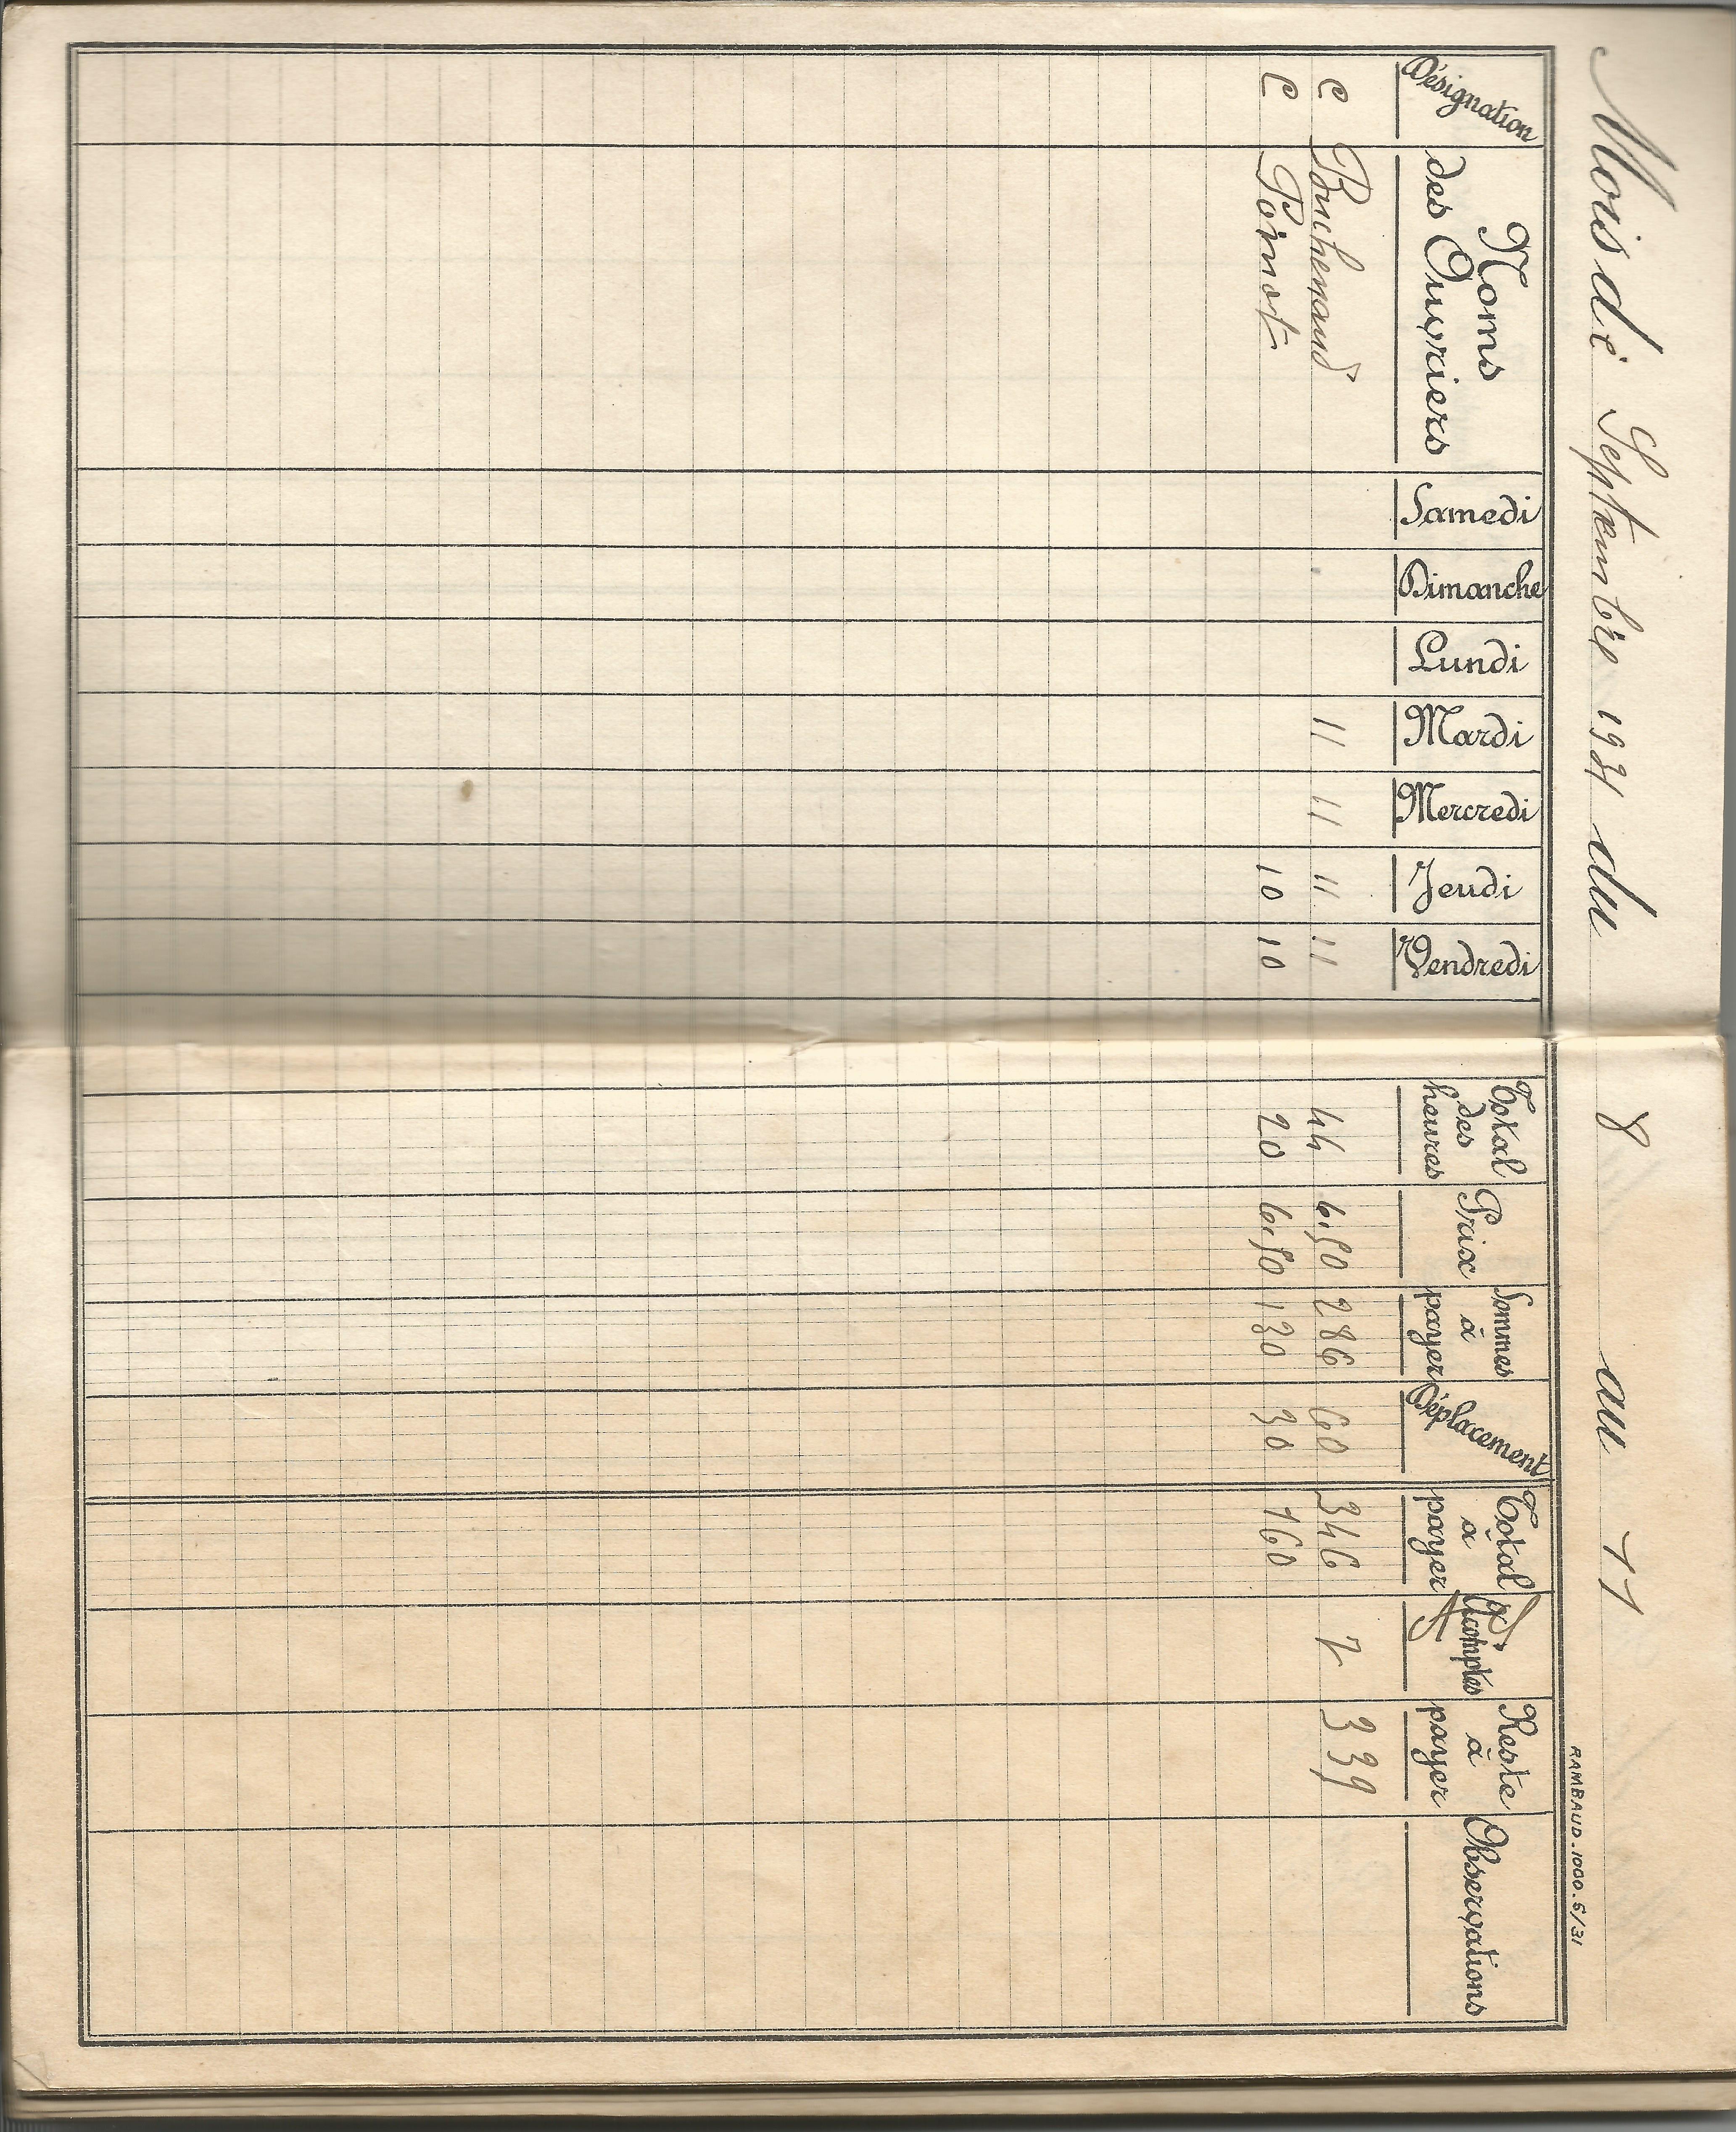 Mois de Septembre 1931 du 8 au 11
RAMBAUD.1000.5/31
Désignation Noms des Ouvriers Samedi Dimanche Lundi Mardi Mercredi Jeudi Vendredi Total des heures Prix Sommes à payer Déplacement Total à payer Acomptes Reste à payer Observations
C 11 11 11 11 44 6,50 286 60 346 7 339
C Poinot 10 10 20 6,50 130 30 160